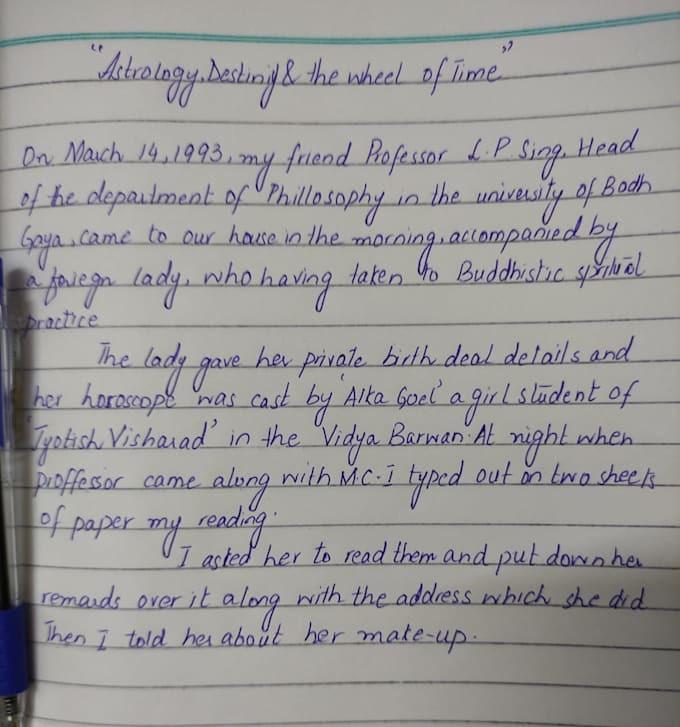 "Astrology, Destiny & the wheel of Time"
On March 14, 1993, my friend Professor L.P. Sing, Head
of the department of Phillosophy in the university of Bodh
Gaya, came to our house in the morning, accompanied by
a foriegn lady, who having taken to Buddhistic spritual
practice
The lady gave her private birth deal details and
her horoscope was cast by 'Alka Goel' a girl student of
'Jyotish Visharad' in the Vidya Barwan. At night when
proffessor came along with M.C. I typed out on two sheets
of paper my reading.
I asked her to read them and put down her
remards over it along with the address which she did
Then I told her about her make-up.